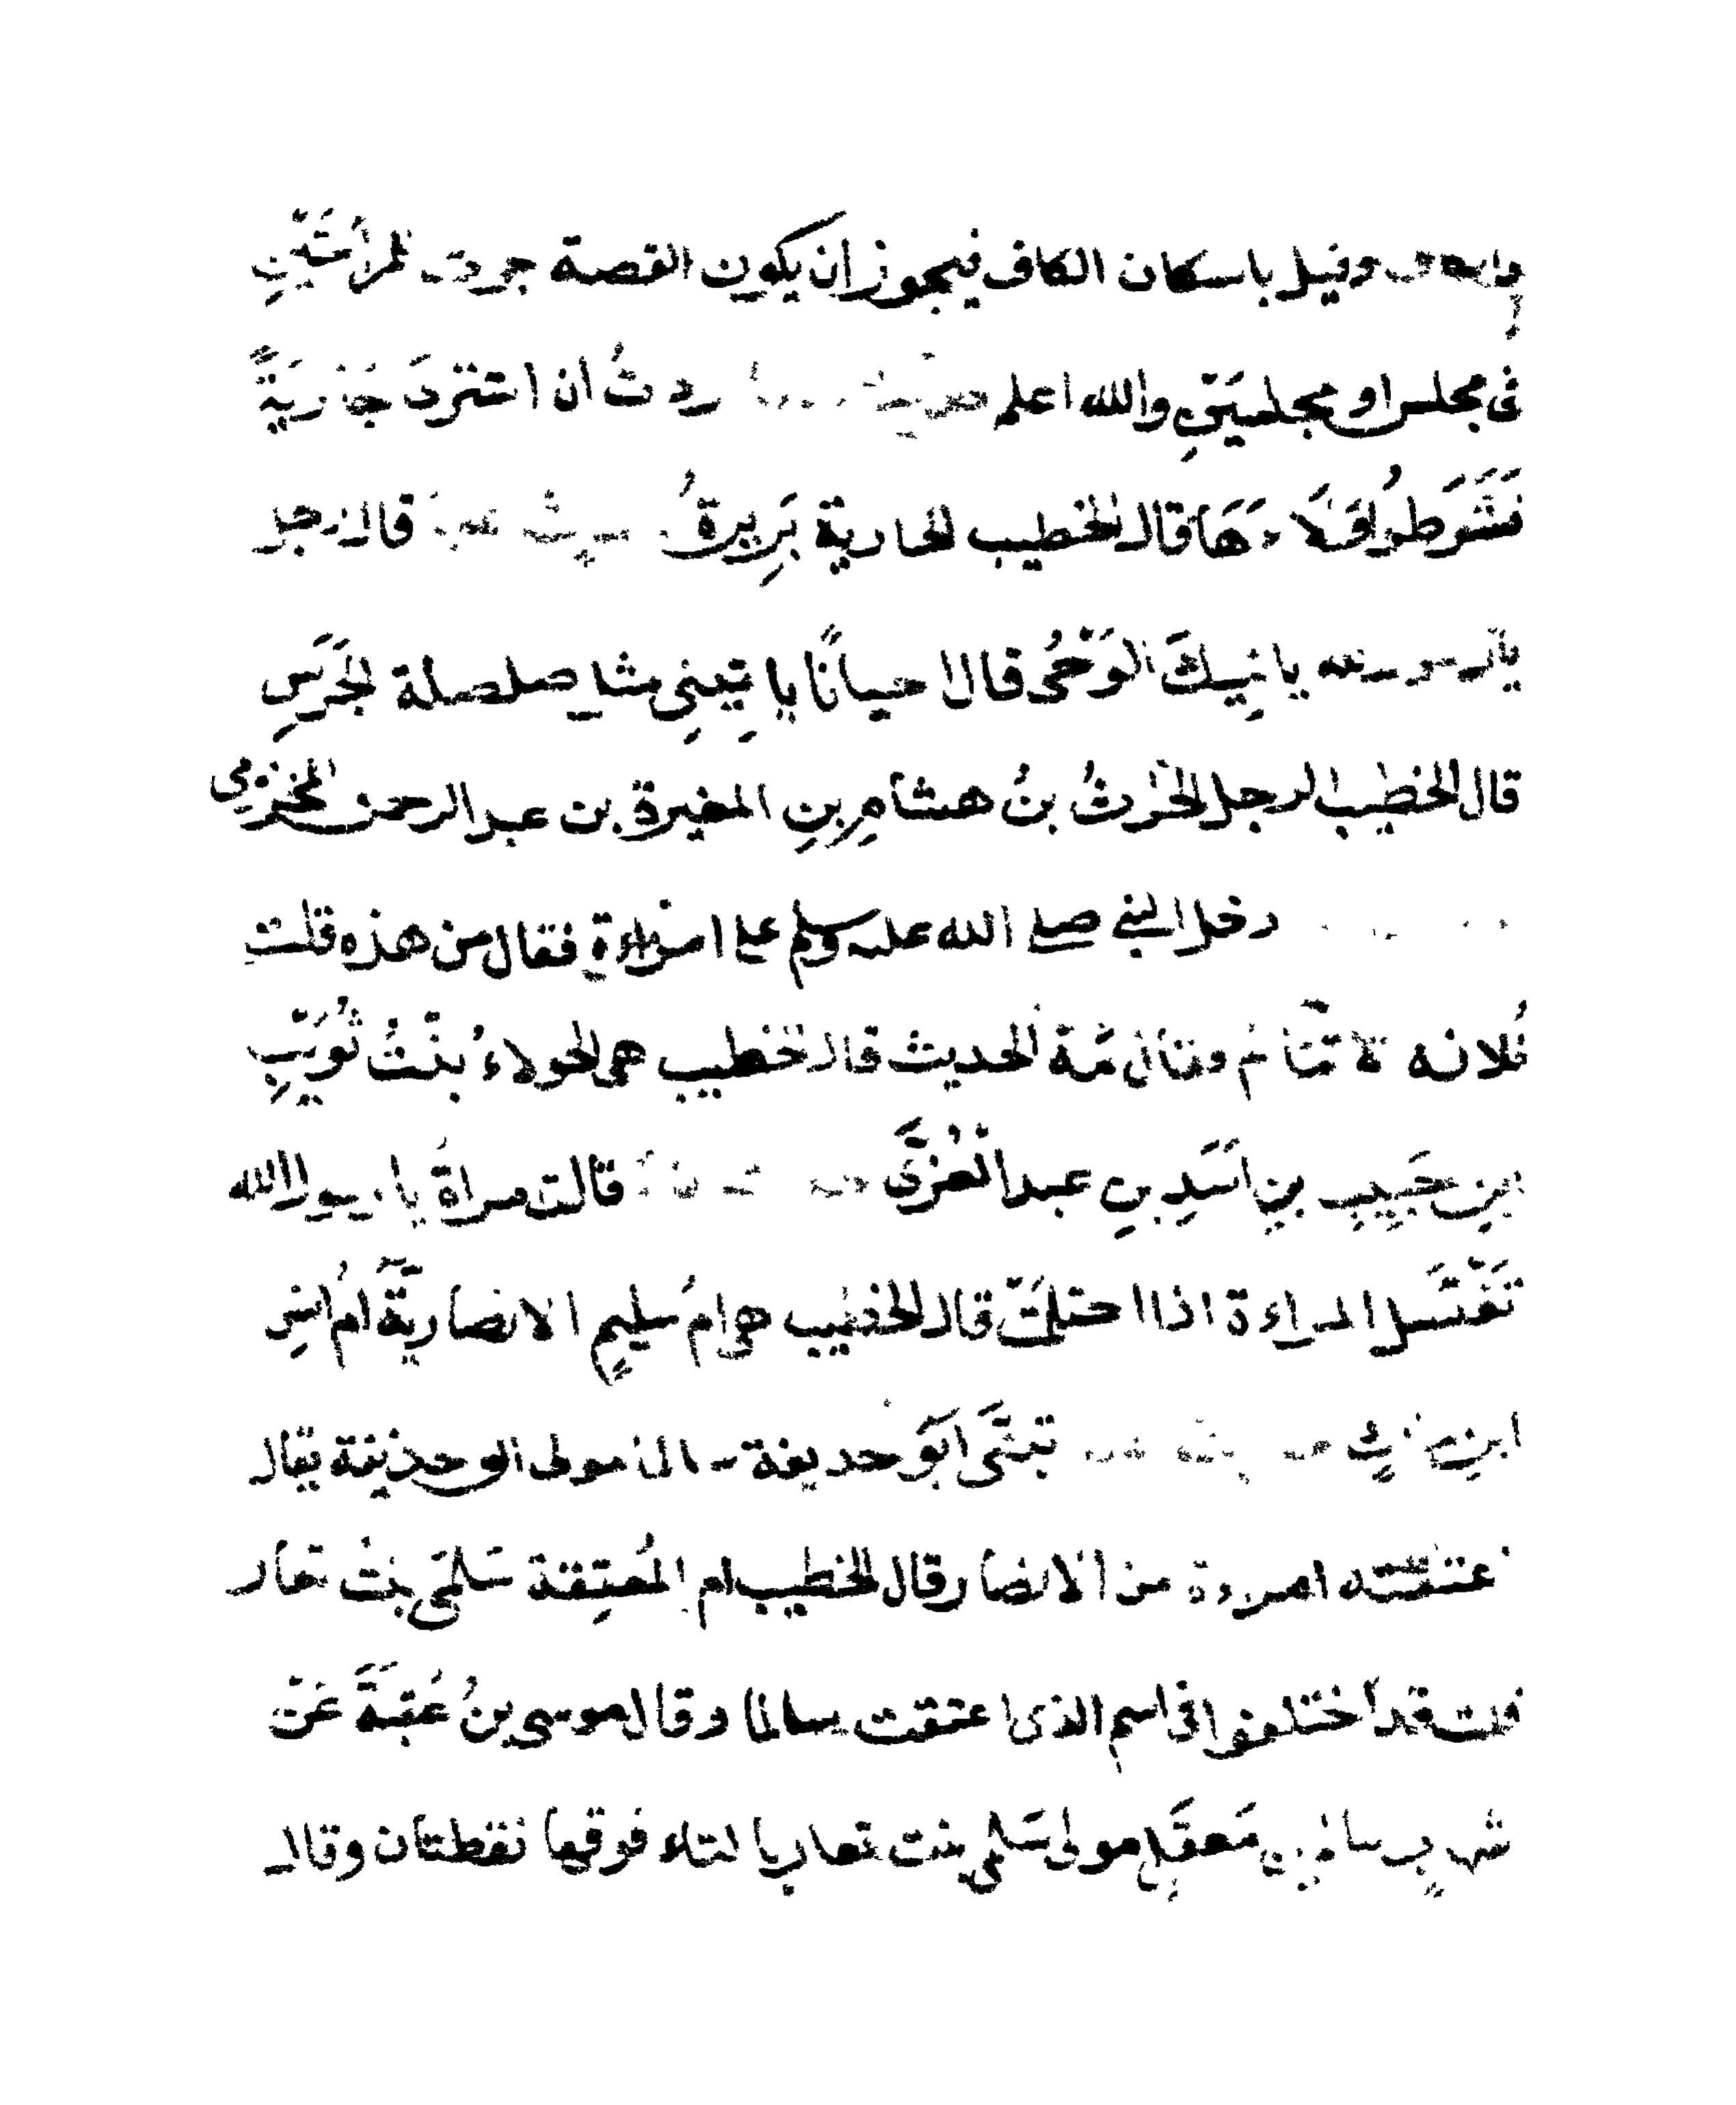 وقيل باسكان الكاف فيجوز ان يكون القصة جرت لمرأتَيْنِ
فى مجلس او مجلسَيْنِ والله اعلم ردتُ ان اشترىَ جَارِيَةً
فَشَرَطُوا وَلَاءَهَا قال الخطيب الجارية بَرِيرةُ قال رجل
يا رسول الله يأتِيكَ الوَحْىُ قال احيانًا يأتِينِى مثل صلصلة الجَرَسِ
قال الخطيب الرجل الحَارثُ بنُ هشامِ بنِ المغيرة بن عبد الرحمن المخزومى
دخل النبى صلى الله عليه وسلم على امراءةٍ فقال من هذه قلت
فُلانه لا تنام الحديث قال الخطيب هى الحولاءُ بنْتُ تُوَيْتِ
بنِ حَبِيبِ بنِ اَسَدِ بنِ عبد العُزَّى قالت مراةٌ يا رسول الله
تَغْتَسل المراءة اذا احتلمَتْ قال الخطيب هى امُ سليمٍ الانصاريَّةُ اُمُ انسِ
ابنِ تبنَّى اَبَو حذيفة سالما مولى ابو حذيفة يقال
اعتقته امراءة من الانصار قال الخطيب ام المُعتِقة سَلمَى بنْتُ تعار
قلت قد اختلفوا فى اسم الذى اعتقت سالما وقال موسى بنُ عُقبَةَ عَنْ
شهابٍ سالم بن مَعقَلٍ مولى سَلْمى بنت تعار با لتاء فوقها نقطتان وقال